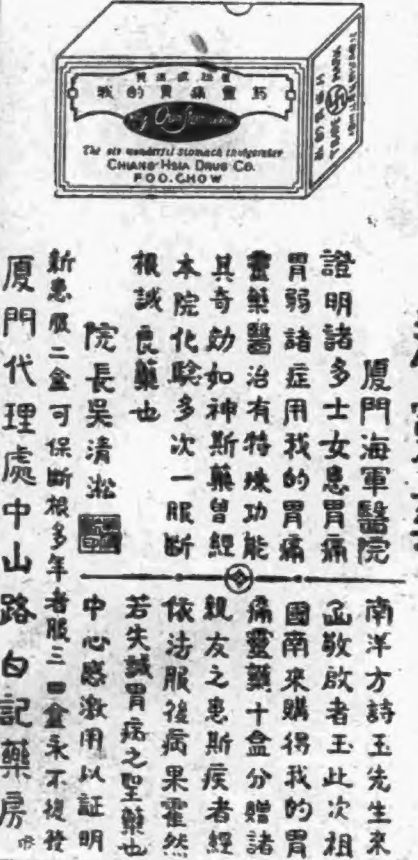 我的胃痛靈葯
The six wonderful stomach invigorator
CHIANG HSIA DRUG CO.
FOO.CHOW
廈門海軍醫院
證明諸多士女患胃痛
胃弱諸症用我的胃痛
靈藥醫治有特殊功能
其奇効如神斯藥曾經
本院化驗多次一服斷
根誠良藥也
院長吳清淞
南洋方詩玉先生來
函敬啟者玉此次祖
國南來購得我的胃
痛靈藥十盒分贈諸
親友之患斯疾者經
依法服後病果霍然
若失誠胃病之聖藥也
中心感激用以証明
新患服二盒可保斷根多年者服三四盒永不復發
廈門代理處中山路白記藥房